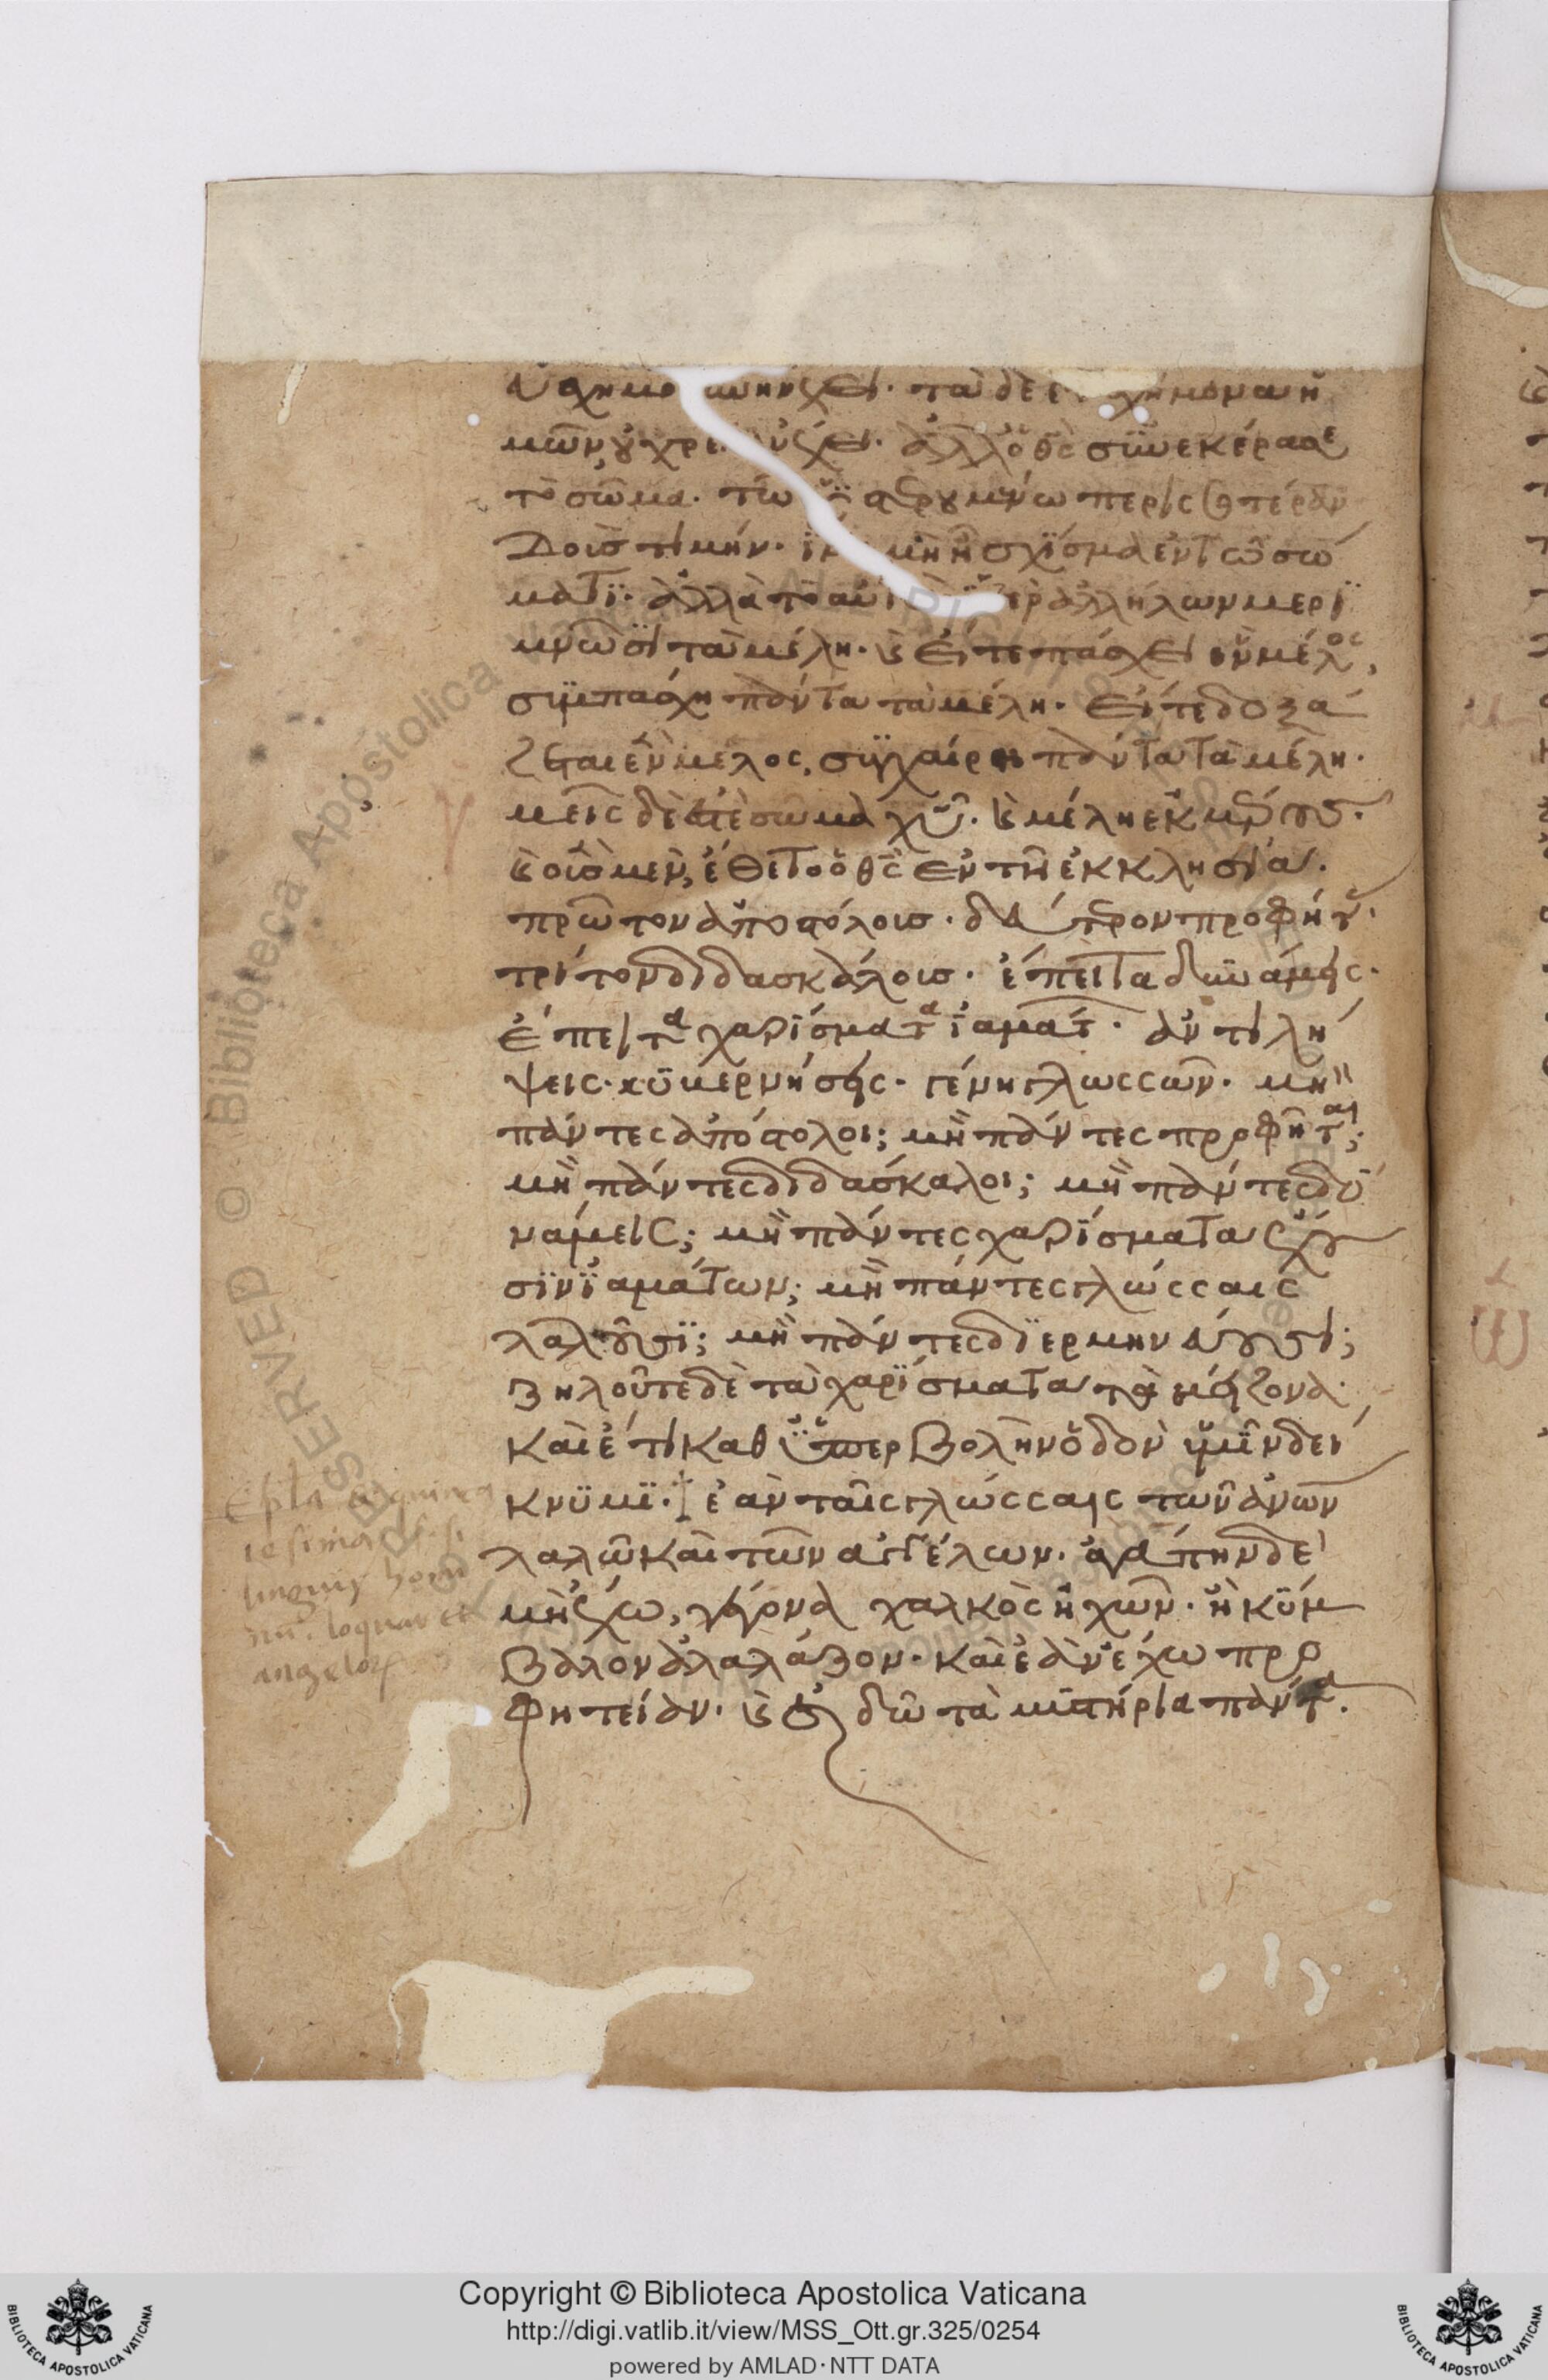 εὐσχημο σύνην ἔχει· τὰ δὲ εὐσχήμονα ἡ
μῶν οὐ χρεί αν ἔχει. ἀλλ ὁ θς συνεκέρασε
τὸ σῶμα. τῶ ὑστερουμένω περισσοτέραν
δοὺσ τιμήν. ἵνα μὴ ἦ σχίσμα ἐν τῶ σώ
ματϊ. ἀλλὰ τὸ αὐτὸ ὑπὲρ ἀλλήλων μερϊ
μνῶσι τὰ μέλη. καὶ εἴτε πάσχει ἓν μέλος,
συμπάσχη πάντα τὰ μέλη. εἴτε δοξά
ζεται ἓν μελος, συγχαίρει πάντα τὰ μέλη.
μεῖς δὲ ἐστὲ σῶμα χῦ. καὶ μέλη ἐκ μέρους.
καὶ οὓσ μὲν, ἔθετο ὁ θς ἐν τῆ ἐκκλησία.
πρῶτον ἀποστόλοισ. δεύτερον προφήτ.
τρίτον διδασκάλοισ. ἔπειτα δυνάμεις.
ἔπειτα χαρίσματα ἰαμάτ. ἀντιλή
ψεις. κϋβερνήσεις. γένη γλωσσῶν. μὴ
πάντες ἀπόστολοι; μὴ πάντες προφῆται;
μὴ πάντες διδάσκαλοι; μὴ πάντες δϋ
νάμεις; μὴ πάντες χαρίσματα ἔχου
σϊν ϊαμάτων; μὴ πάντες γλώσσαις
λαλοῦσϊ; μὴ πάντες δϊερμηνεύουσι;
ζηλοῦτε δὲ τὰ χαρϊσματα τὰ μείζονα.
καὶ ἔτι καθ ὑπερβολὴν ὁδὸν ὑμῖν δεί
κνϋμϊ. † ἐὰν ταῖς γλώσσαις τῶν ἀνων
λαλῶ καὶ τῶν ἀγγέλων. ἀγάπην δὲ
μὴ ἔχω, γέγονα χαλκὸς ἠχῶν. ἢ κϋμ
βαλον ἀλαλάζον. καὶ ἐὰν ἔχω προ
φητείαν. καὶ εἰδῶ τὰ μϋστήρια πάντα.
angelorum
Copyright © Biblioteca Apostolica Vaticana
http://digi.vatlib.it/view/MSS_Ott.gr.325/0254
powered by AMLAD·NTT DATA